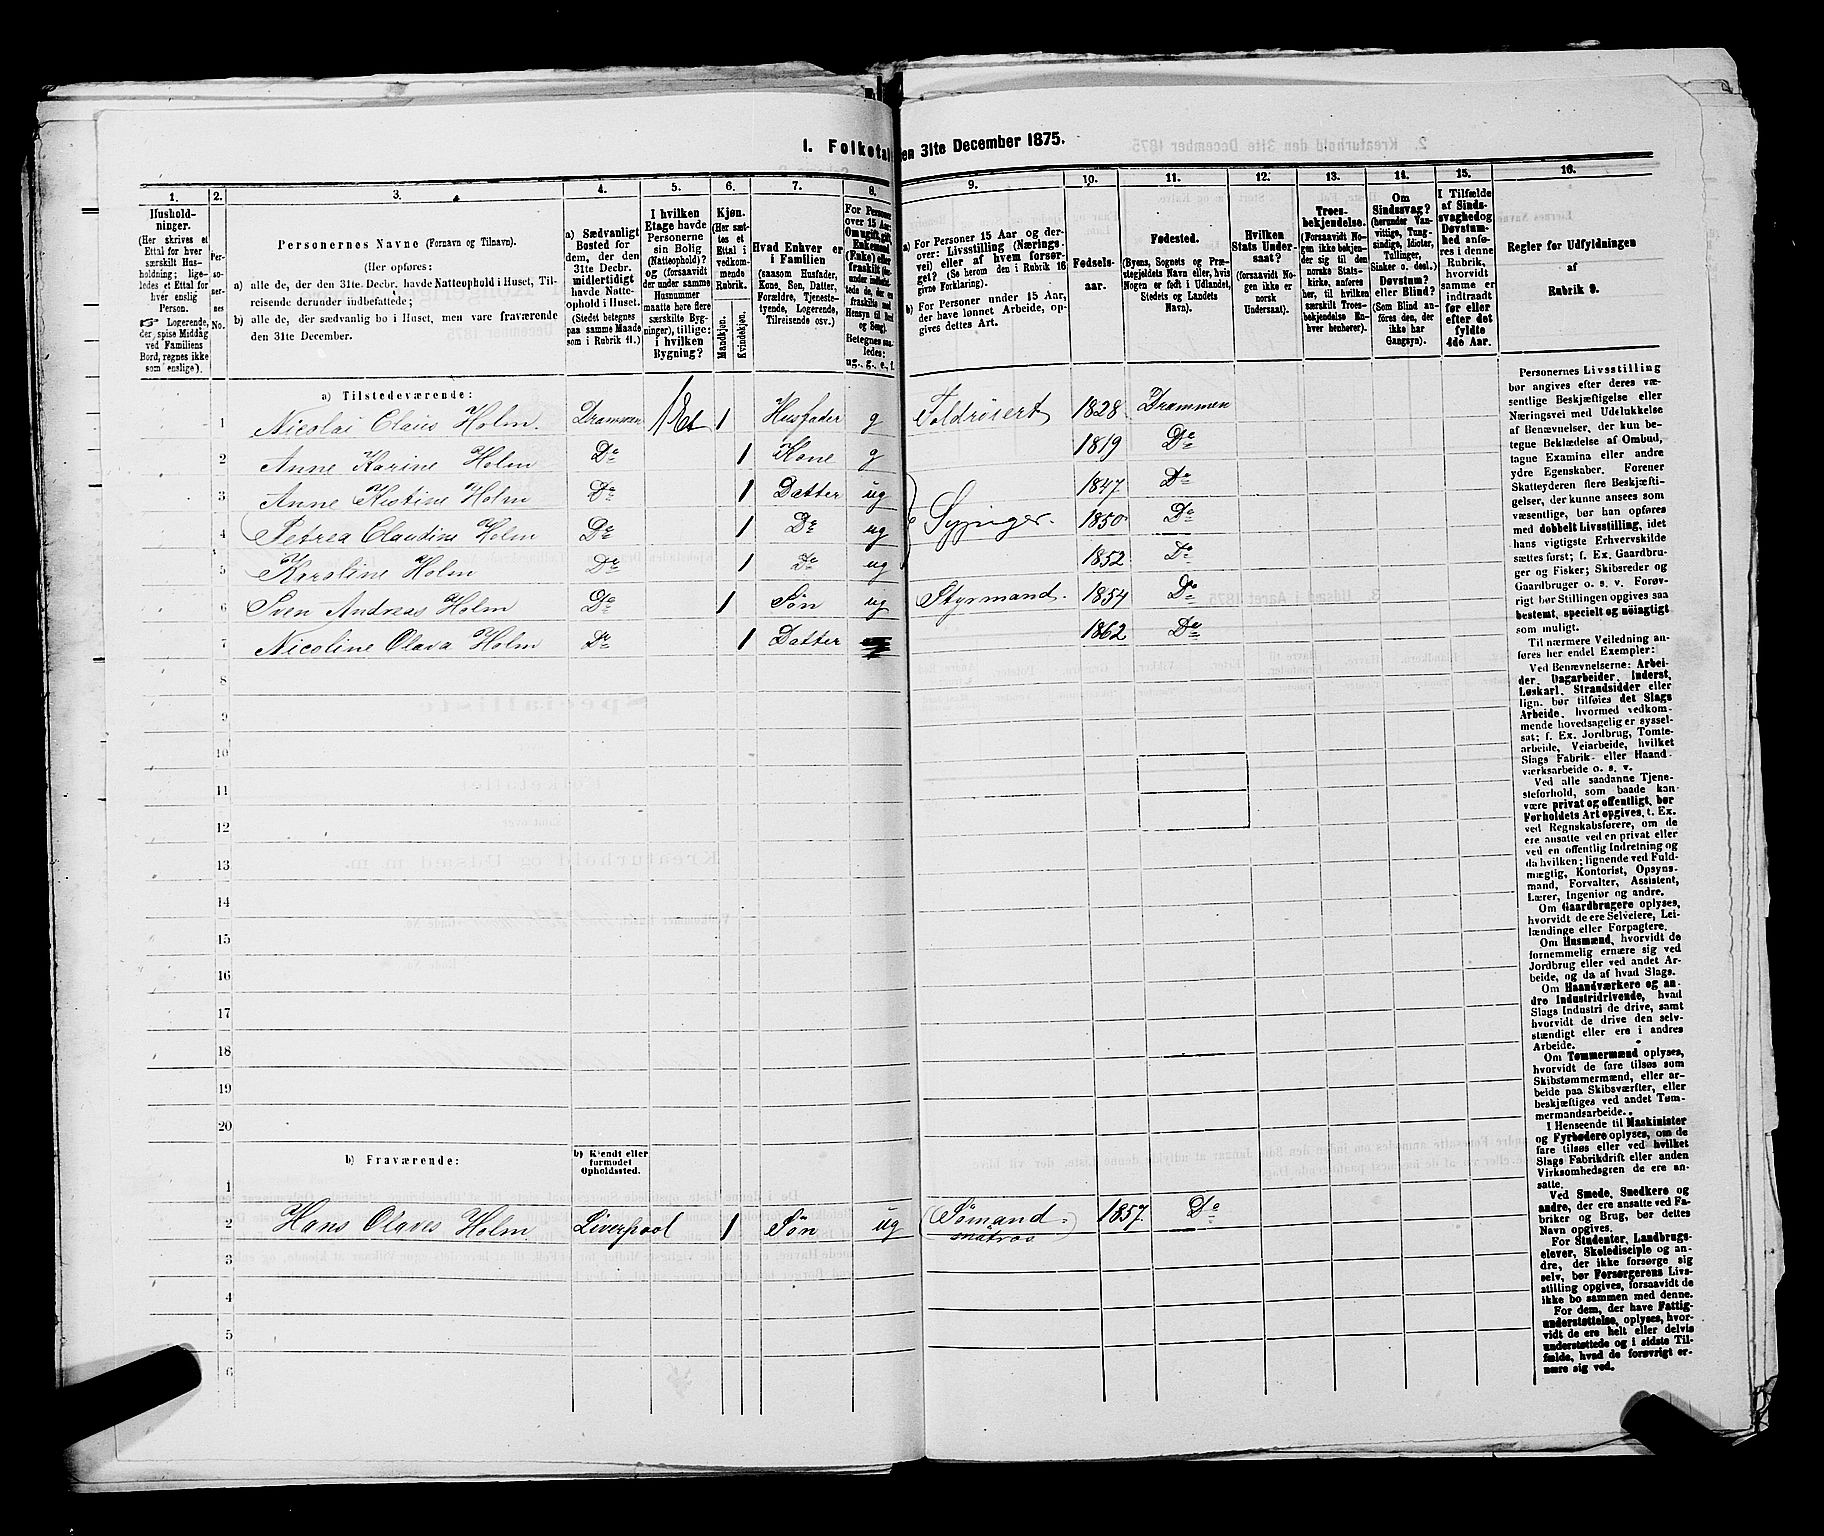 1. Folketal
en 31te December 1875.
1.
2.
3.
4.
5.
6.
7.
8.
9.
10.
11.
12.
13.
14.
15.
16.
Hushold-
ninger.
(Her skrives et
Ettal for hver
særskilt Hus-
holdning; lige-
ledes et Ettal for
hver enslig
Person.
☞ Logerende,
der, spise Middag
ved Familiens
Bord, regnes ikke
som enslige).
Per-
so-
ner-
nes
No.
Personernes Navne (Fornavn og Tilnavn).
(Her opføres:
a) alle de, der den 31te. Decbr. havde Natteophold i Huset, Til-
reisende derunder indbefattede;
b) alle de, der sædvanlig bo i Huset, men vare fraværende
den 31te December.
a) Sædvanligt
Bosted for
dem, der den
31te Decbr.
midlertidigt
havde Natte-
ophold i Huset.
(Stedet betegnes
paa samme Maade
som i Rubrik 11.)
I hvilken
Etage havde
Personerne
sin Bolig
(Natteophold)?
og (forsaavidt
der under samme
Husnummer
maatte høre flere
særskilte Byg-
ninger), tillige:
i hvilken
Bygning?
Kjøn.
(Her sæt-
tes et
Ettal i
vedkom-
mende
Rubrik.
Mandkjøn.
Kvindekjøn.
Hvad Enhver er
i Familien
(saasom Husfader,
Kone, Søn, Datter,
Forældre, Tjeneste-
tyende, Logerende,
Tilreisende osv.)
For Personer
over 15 Aar:
Om ugift, gift,
Enkemand
(Enke) eller
fraskilt
Hensyn til Bord
og Seng).
Betegnes saa-
ledes:
ug., g., e., f.
a) For Personer 15 Aar og der-
over: Livsstilling (Nærings-
vei) eller af hvem forsør-
get? (Se herom den i Rubrik 16
givne Forklaring).
b) For Personer under 15 Aar,
der have lønnet Arbeide, op-
gives dettes Art.
Fødsels-
aar.
Fødested.
(Byens, Sognets og Præ-
stegjeldets Navn eller, hvis
Nogen er født i Udlandet,
Stedets og Landets
Navn).
Hvilken
Stats Under-
saat?
(forsaavidt No-
gen ikke er
norsk
Undersaat).
Troes-
bekjendelse.
(Forsaavidt No-
gen ikke bekjen-
der sig til den
norske Stats-
kirke, anføres
her, til hvilken
særskilt Troes-
bekjendelse En-
hver henhører).
Om
Sindssvag?
(herunder Van-
vittige, Tung-
sindige, Idioter,
Tullinger,
Sinker o. desl.)
Døvstum?
eller Blind?
(Som Blind an-
føres den, der
ikke har
Gangsyn).
I Tilfælde
af Sinds-
svaghed og
Døvstum-
hed anfø-
res i denne
Rubrik,
hvorvidt
samme er
indtraadt
før eller
efter det
fyldte
4de Aar.
Regler for Udfyldningen
af
Rubrik 9.
a) Tilstedeværende:
1 Nicolai Claus Holm. Drammen 1 Et 1 Husfader g Toldrorsert 1828 Drammen
2 Anne Karine Holm Do 1 Kone g 1819 Do
3 Anne Kistine Holm Do 1 Datter ug 1847 Do
4 Petrea Claudine Holm Do 1 Do ug Sypiger. 1850 Do
5 Karoline Holm Do 1 Do ug 1852 Do
6 Sven Andreas Holm Do 1 Søn ug Styrmand. 1854 Do
7 Nicoline Olava Holm Do 1 Datter 1862 Do
8
9
10
11
12
13
14
15
16
17
18
19
20
b) Fraværende:
b) Kjendt eller
formodet
Opholdssted.
1
2 Hans Olaves Holm Liverpool 1 Søn ug (Sømand.) 1857. Do
matros
3
4
5
6
Personernes Livsstilling
bør angives efter deres væ-
sentlige Beskjæftigelse eller
Næringsvei med Udelukkelse
af Benævnelser, der kun be-
tegne Beklædelse af Ombud,
tagne Examina eller andre
ydre Egenskaber. Forener
Skatteyderen flere Beskjæfti-
gelser, der kunne ansees som
væsentlige, bør han opføres
med dobbelt Livsstilling, idet
hans vigtigste Erhvervskilde
sættes først; f. Ex. Gaardbru-
ger og Fisker; Skibsreder og
Gaardbruger o. s. v. Forøv-
rigt bør Stillingen opgives saa
bestemt, specielt og nøiagtigt
som muligt.
Til nærmere Veiledning an-
føres her endel Exempler:
Ved Benævnelserne: Arbei-
der, Dagarbeider, Inderst,
Løskarl, Strandsidder eller
lign. bør tilføies det Slags
Arbeide, hvormed vedkom-
mende hovedsagelig er syssel-
sat; f. Ex. Jordbrug, Tomte-
arbeide, Veiarbeide, hvilket
Slags Fabrik- eller Haand-
værksarbeide o. s. v.
Ved alle saadanne Tjene-
steforhold, som baade kan
være privat og offentligt, bør
Forholdets Art opgives, t. Ex.
ved Regnskabsførere, om de
ere ansatte ved en privat eller
ved en offentlig Indretning og
da hvilken; lignende ved Fuld-
mægtig, Kontorist, Opsyns-
mand, Forvalter, Assistent,
Lærer, Ingeniør og andre.
Om Gaardbrugere oplyses,
hvorvidt de ere Selveiere, Lei-
lændinge eller Forpagtere.
Om Husmænd, hvorvidt de
fornemmelig ernære sig ved
Jordbrug eller ved andet Ar-
beide, og da af hvad Slags.
Om Haandværkere og an-
dre Industridrivende, hvad
Slags Industri de drive, samt
hvorvidt de drive den selv-
stændigt eller ere i andres
Arbeide.
Om Tømmermænd oplyses,
hvorvidt de fare tilsøs som
Skibstømmermænd, eller ar-
beide paa Skibsværfter, eller
beskjæftiges ved andet Tøm-
mermandsarbeide.
I Henseende til Maskinister
og Fyrbødere oplyses, om de
fare tilsøs eller ved hvilket
Slags Fabrikdrift eller anden
Virksomhedsgren de ere an-
satte.
Ved Smede, Snedkere og
andre, der ere ansatte ved Fa-
briker og Brug, bør dettes
Navn opgives.
For Studenter, Landbrugs-
elever, Skoledisciple og an-
dre, der ikke forsørge sig
selv, bør Forsørgerens Livs-
stilling opgives, forsaavidt de
ikke bo sammen med denne.
For dem, der have Fattig-
understøttelse, oplyses, hvor-
vidt de ere helt eller delvis
understøttede og i sidste Til-
fælde, hvad de forøvrigt er-
nære sig ved.